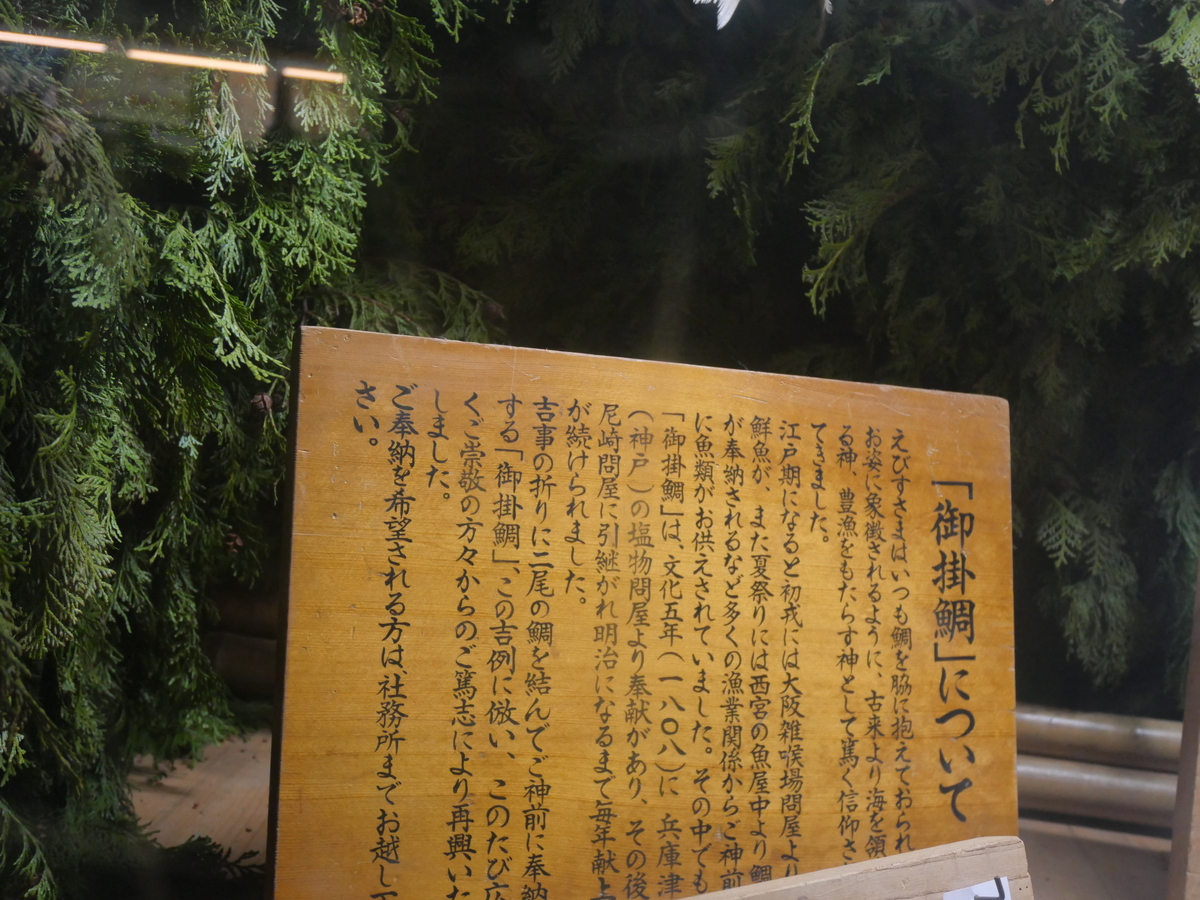 「御掛鯛」について
えびすさまはいつも鯛を脇に抱えておられ
お姿に象徴されるように、古来より海を領
る神、豊漁をもたらす神として篤く信仰さ
てきました。
江戸期になると初戎には大阪雑喉場問屋より
鮮魚が、また夏祭りには西宮の魚屋中より鯛
が奉納されるなど多くの漁業関係からご神前
に魚類がお供えされていました。その中でも
「御掛鯛」は、文化五年(一八〇八)に 兵庫津
(神戸)の塩物問屋より奉献があり、その後
尼崎問屋に引継がれ明治になるまで毎年献上
が続けられました。
吉事の折りに二尾の鯛を結んでご神前に奉納
する「御掛鯛」、この吉例に倣い、このたび広
くご崇敬の方々からのご篤志により再興いた
しました。
ご奉納を希望される方は、社務所までお越し下
さい。